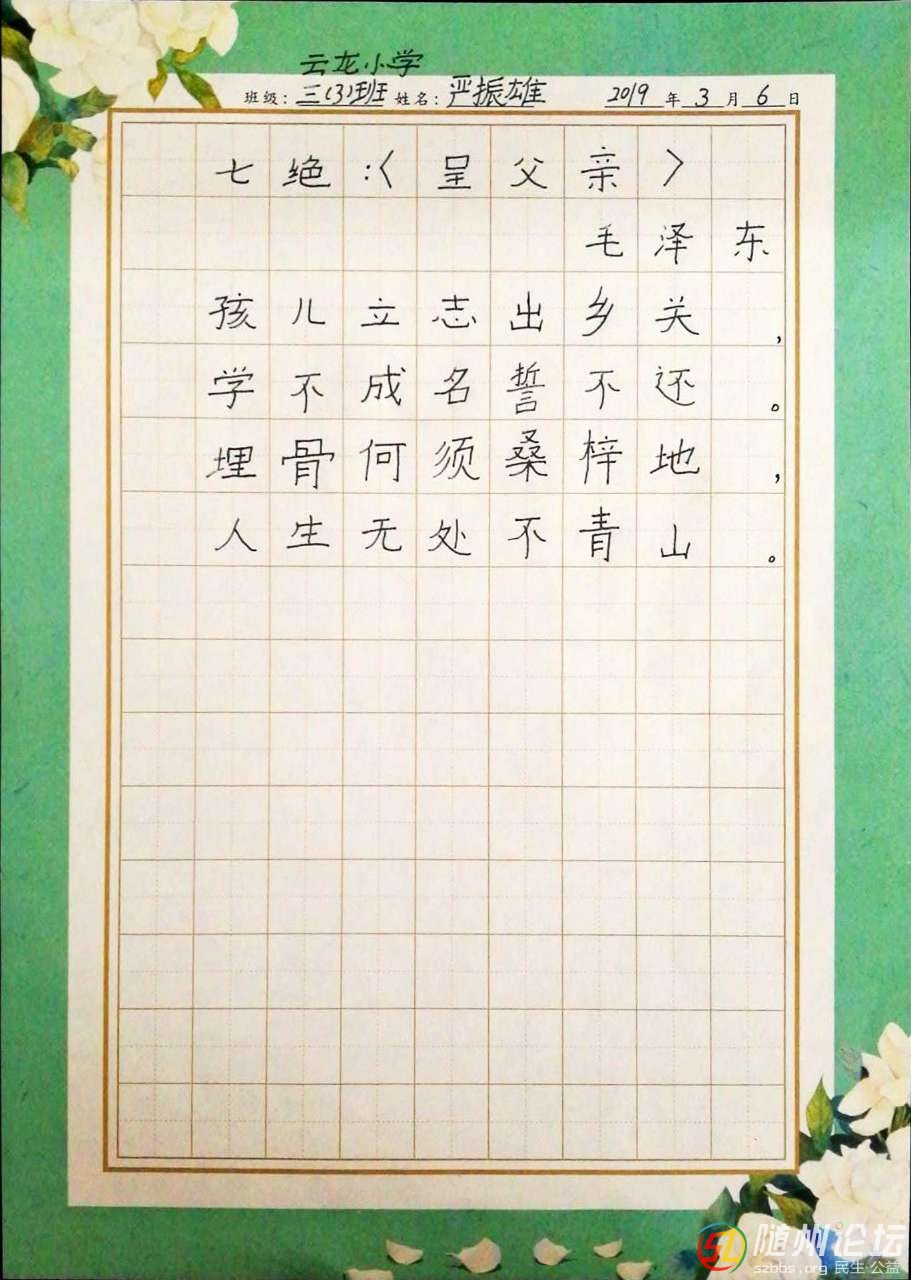 云龙小学
班级：三(3)班 姓名：严振雄 2019年3月6日
七绝:〈呈父亲〉
毛泽东
孩儿立志出乡关,
学不成名誓不还。
埋骨何须桑梓地,
人生无处不青山。
随州论坛
szbbs.org 民生·公益